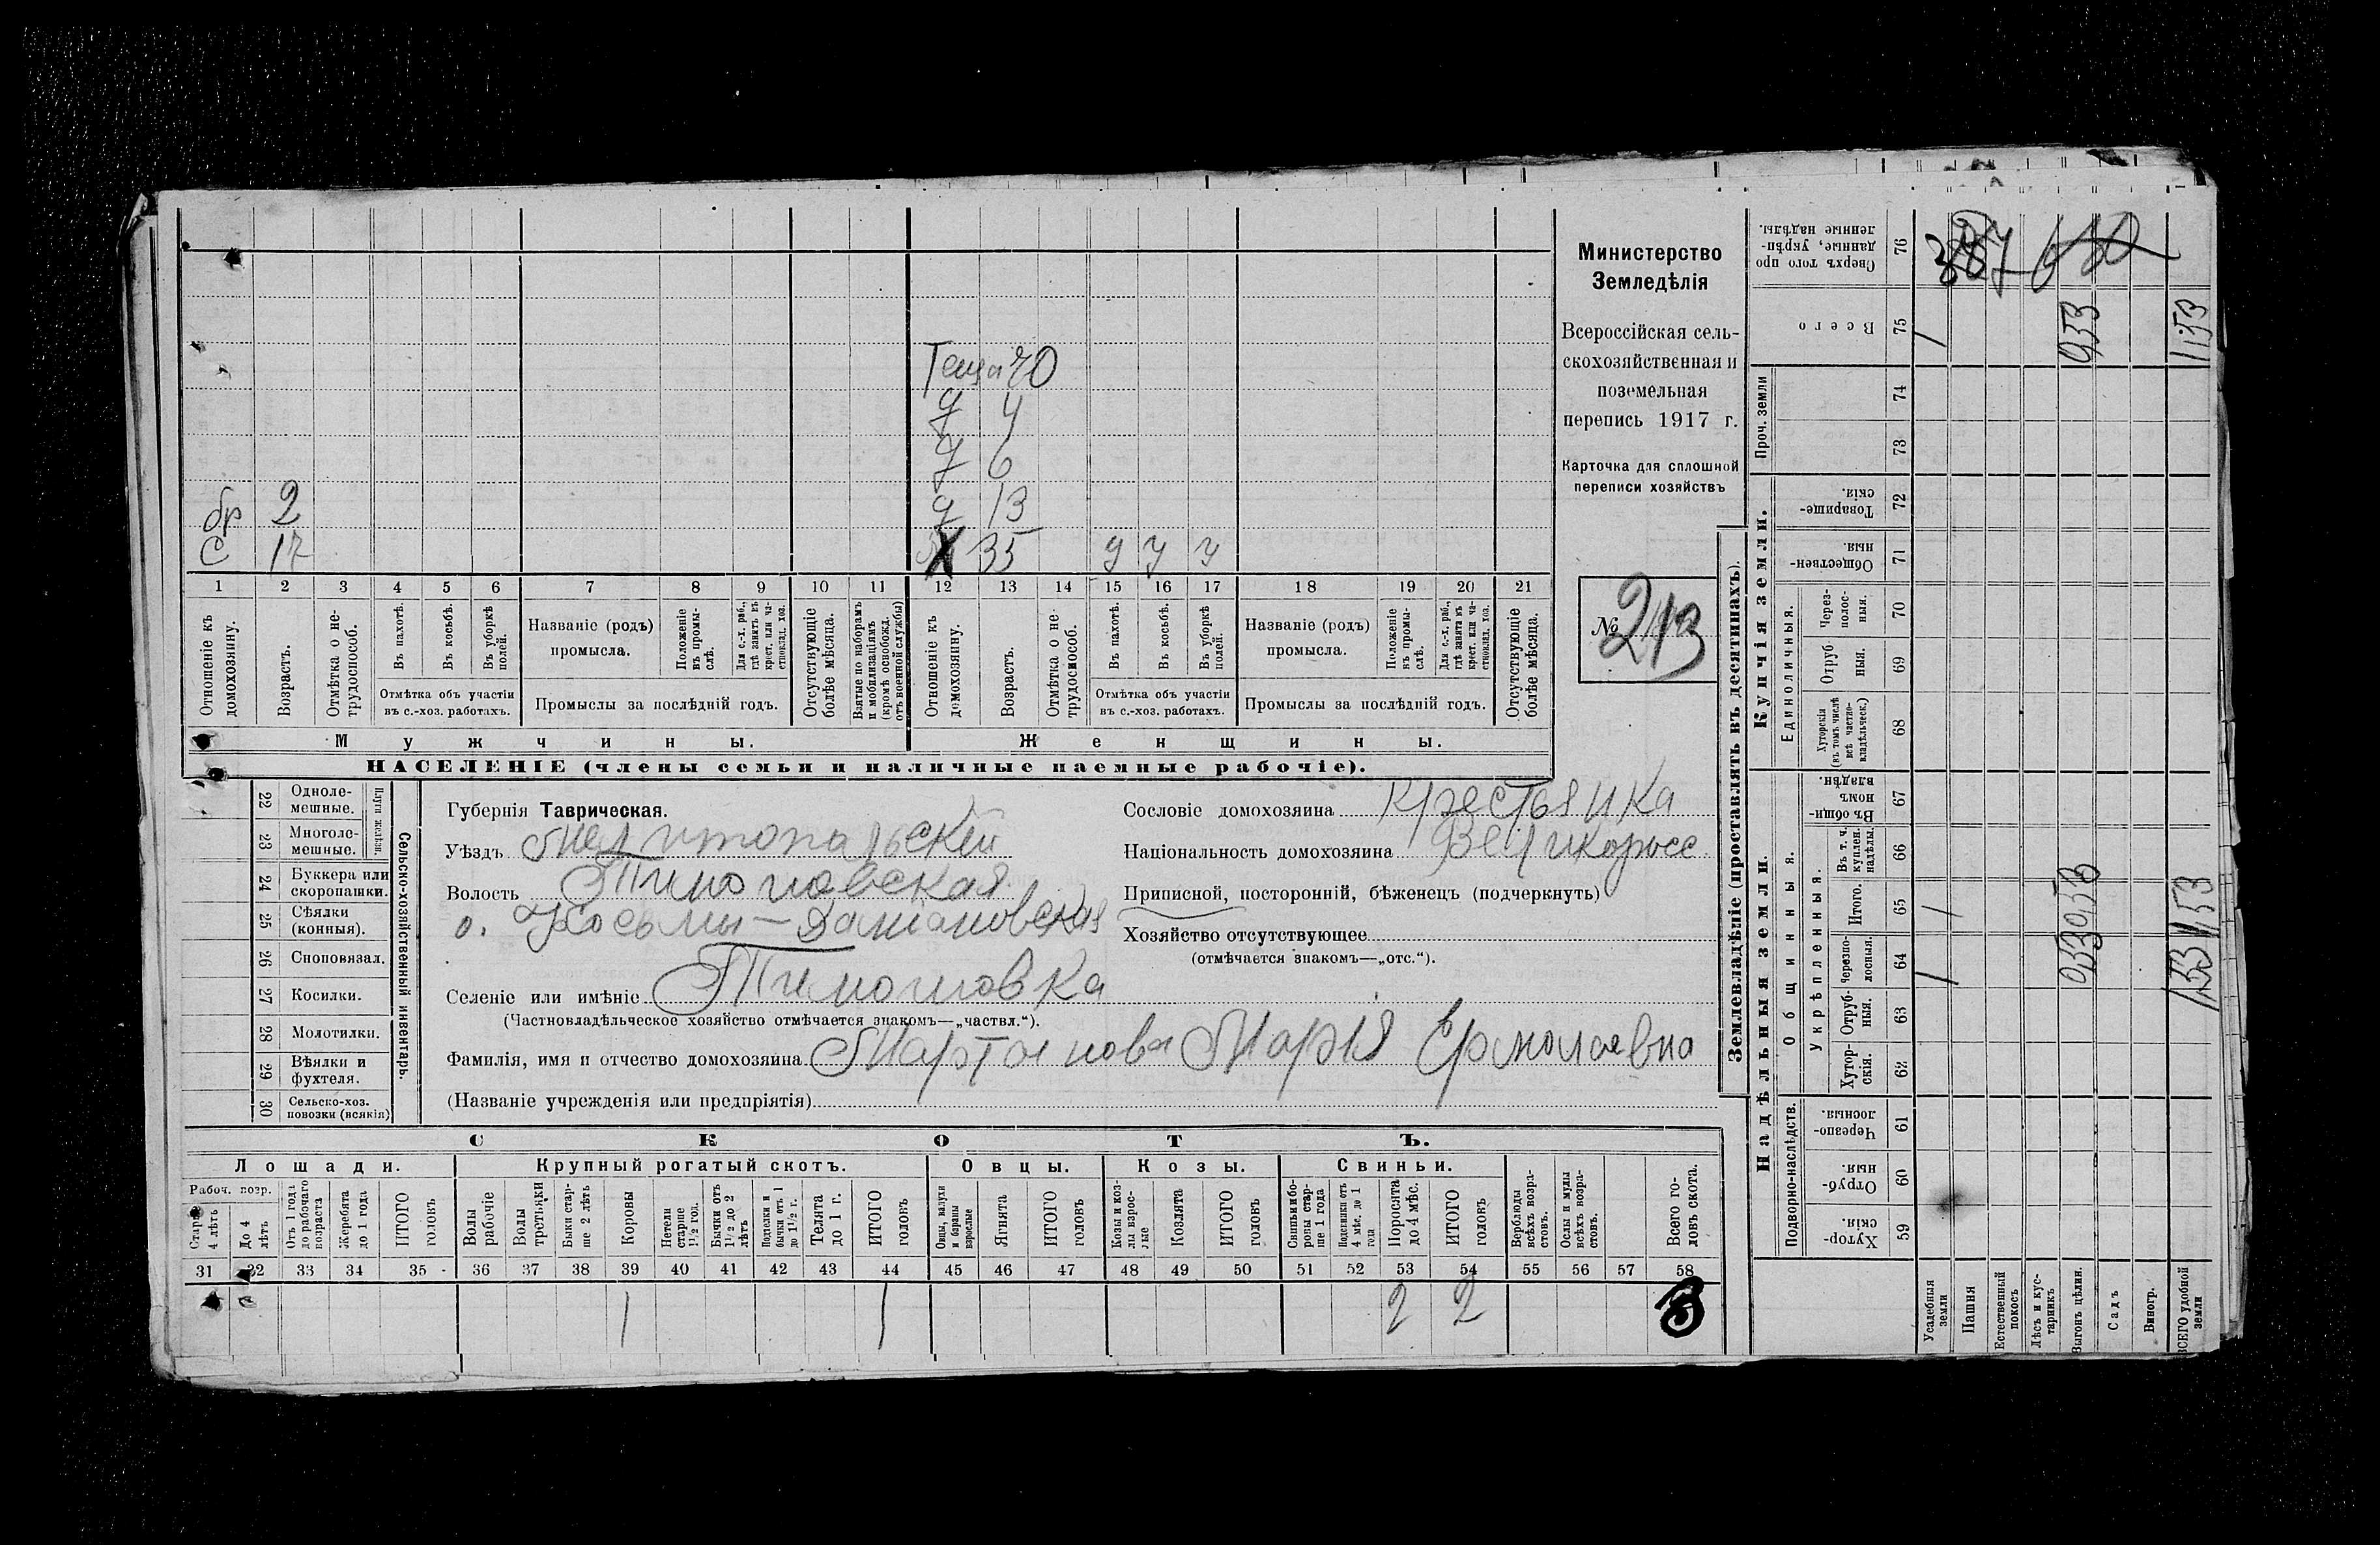 Теща 70
д 4
д 6
бр 2 д 13
с 17 Х 35 у у у
1 2 3 4 5 6 7 8 9 10 11 12 13 14 15 16 17 18 19 20 21
Отношеніе къ домохозяину.
Возрастъ.
Отмѣтка о не-трудоспособ.
Въ пахотѣ.
Въ косьбѣ.
Въ уборкѣ полей.
Отмѣтка объ участіи
въ с.-хоз. работахъ.
Названіе (родъ)
промысла.
Положеніе въ промы-слѣ.
Для с.-х. раб., гдѣ занятъ въ крест. или ча-стновлад. хоз.
Промыслы за послѣдній годъ.
Отсутствующіе болѣе мѣсяца.
Взятые по наборамъ и мобилизаціямъ (кромѣ освобожд. отъ военной службы)
Отношеніе къ домохозяину.
Возрастъ.
Отмѣтка о не-трудоспособ.
Въ пахотѣ.
Въ косьбѣ.
Въ уборкѣ полей.
Отмѣтка объ участіи
въ с.-хоз. работахъ.
Названіе (родъ)
промысла.
Положеніе въ промы-слѣ.
Для с.-х. раб., гдѣ занята въ крест. или ча-стновлад. хоз.
Промыслы за послѣдній годъ.
Отсутствующіе болѣе мѣсяца.
Мужчины. Женщины.
НАСЕЛЕНІЕ (члены семьи и наличные наемные рабочіе).
Министерство
Земледѣлія
Всероссійская сель-
скохозяйственная и
поземельная
перепись 1917 г.
Карточка для сплошной
переписи хозяйствъ
№ 213
22 Одноле-мешные.
23 Многоле-мешные.
Плуги желѣзн.
24 Буккера или скоропашки.
25 Сѣялки (конныя).
26 Сноповязал.
27 Косилки.
28 Молотилки.
29 Вѣялки и фухтеля.
30 Сельско-хоз. повозки (всякія)
Сельско-хозяйственный инвентарь.
Губернія Таврическая.
Уѣздъ Мелитопольскій
Волость Тимошовская
о. Косьмы-Даміановская
Селеніе или имѣніе Тимошовка
(Частновладѣльческое хозяйство отмѣчается знакомъ—„частвл.“).
Фамилія, имя и отчество домохозяина Мартынова Марія Ермолаевна
(Названіе учрежденія или предпріятія)
Сословіе домохозяина Крестьянка
Національность домохозяина Великоросс.
Приписной, посторонній, бѣженецъ (подчеркнуть)
Хозяйство отсутствующее
(отмѣчается знакомъ—„отс.“).
СКОТЪ.
Лошади. Крупный рогатый скотъ. Овцы. Козы. Свиньи.
Рабоч. возр.
Старше 4 лѣтъ
До 4 лѣтъ
Отъ 1 года до рабочаго возраста
Жеребята до 1 года
ИТОГО головъ
Волы рабочіе
Волы третьяки
Быки стар-ше 2 лѣтъ
Коровы
Нетели старше 1½ год.
Бычки отъ 1½ до 2 лѣтъ
Подтелки и бычки отъ 1 до 1½ г.
Телята до 1 г.
ИТОГО головъ
Овцы, валухи и бараны взрослые
Ягнята
ИТОГО головъ
Козы и коз-лы взрос-лые
Козлята
ИТОГО головъ
Свиньи и бо-ровы стар-ше 1 года
Подсвинки отъ 4 мѣс. до 1 года
Поросята до 4 мѣс.
ИТОГО головъ
Верблюды всѣхъ возра-стовъ.
Ослы и мулы всѣхъ возра-стовъ.
Всего го-ловъ скота.
31 32 33 34 35 36 37 38 39 40 41 42 43 44 45 46 47 48 49 50 51 52 53 54 55 56 57 58
1 1 2 2 3
Землевладѣніе (проставлять въ десятинахъ).
Сверхъ того про данные, укрѣп-ленные надѣлы. 76 387 680
Всего 75 1 0,53 1,53
Проч. земли 74
73
Купчія земли.
Товарище-скія. 72
Обществен-ныя. 71
Единоличныя.
Через-полос-ныя. 70
Отруб-ныя. 69
Хуторскія (въ томъ числѣ всѣ частно-владѣльческ.) 68
Надѣльныя земли.
Общинныя.
Въ общи-номъ владѣн. 67
Укрѣпленныя.
Въ т. ч. куплен. надѣлы. 66
Итого. 65 1 0,53 1,53
Черезпо-лосныя. 64 1 0,53 1,53
Отруб-ныя. 63
Хутор-скія. 62
Подворно-наслѣдств.
Черезпо-лосныя. 61
Отруб-ныя. 60
Хутор-скія. 59
Усадебныя земли
Пашня
Естественный покосъ
Лѣсъ и кус-тарникъ
Выгонъ цѣлин.
Садъ
Виногр.
ВСЕГО удобной земли